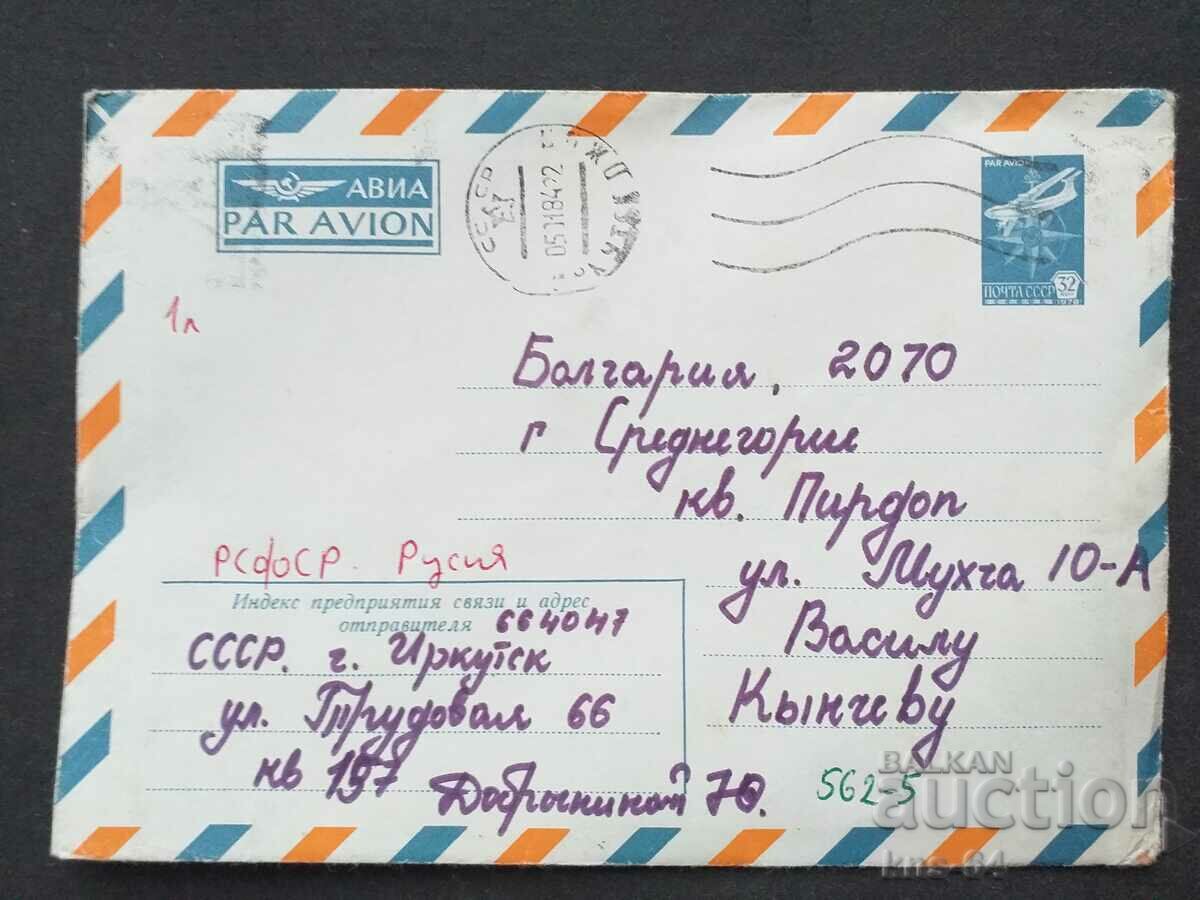 АВИА
PAR AVION
СССР
05118422
PAR AVION
ПОЧТА СССР 32
1978
1л
Болгария, 2070
г Среднегорие
кв. Пирдоп
ул. Мухча 10-А
Василу
Кынчеву
РСФСР. Русия
Индекс предприятия связи и адрес
отправителя 664047
СССР. г. Иркутск
ул. Трудовая 66
кв 197
Добрыниной
562-5
BALKAN
auction
kns-64